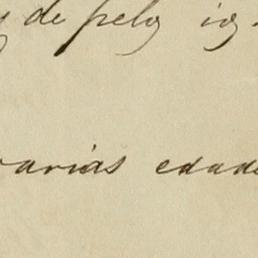 de pelo
varias edade